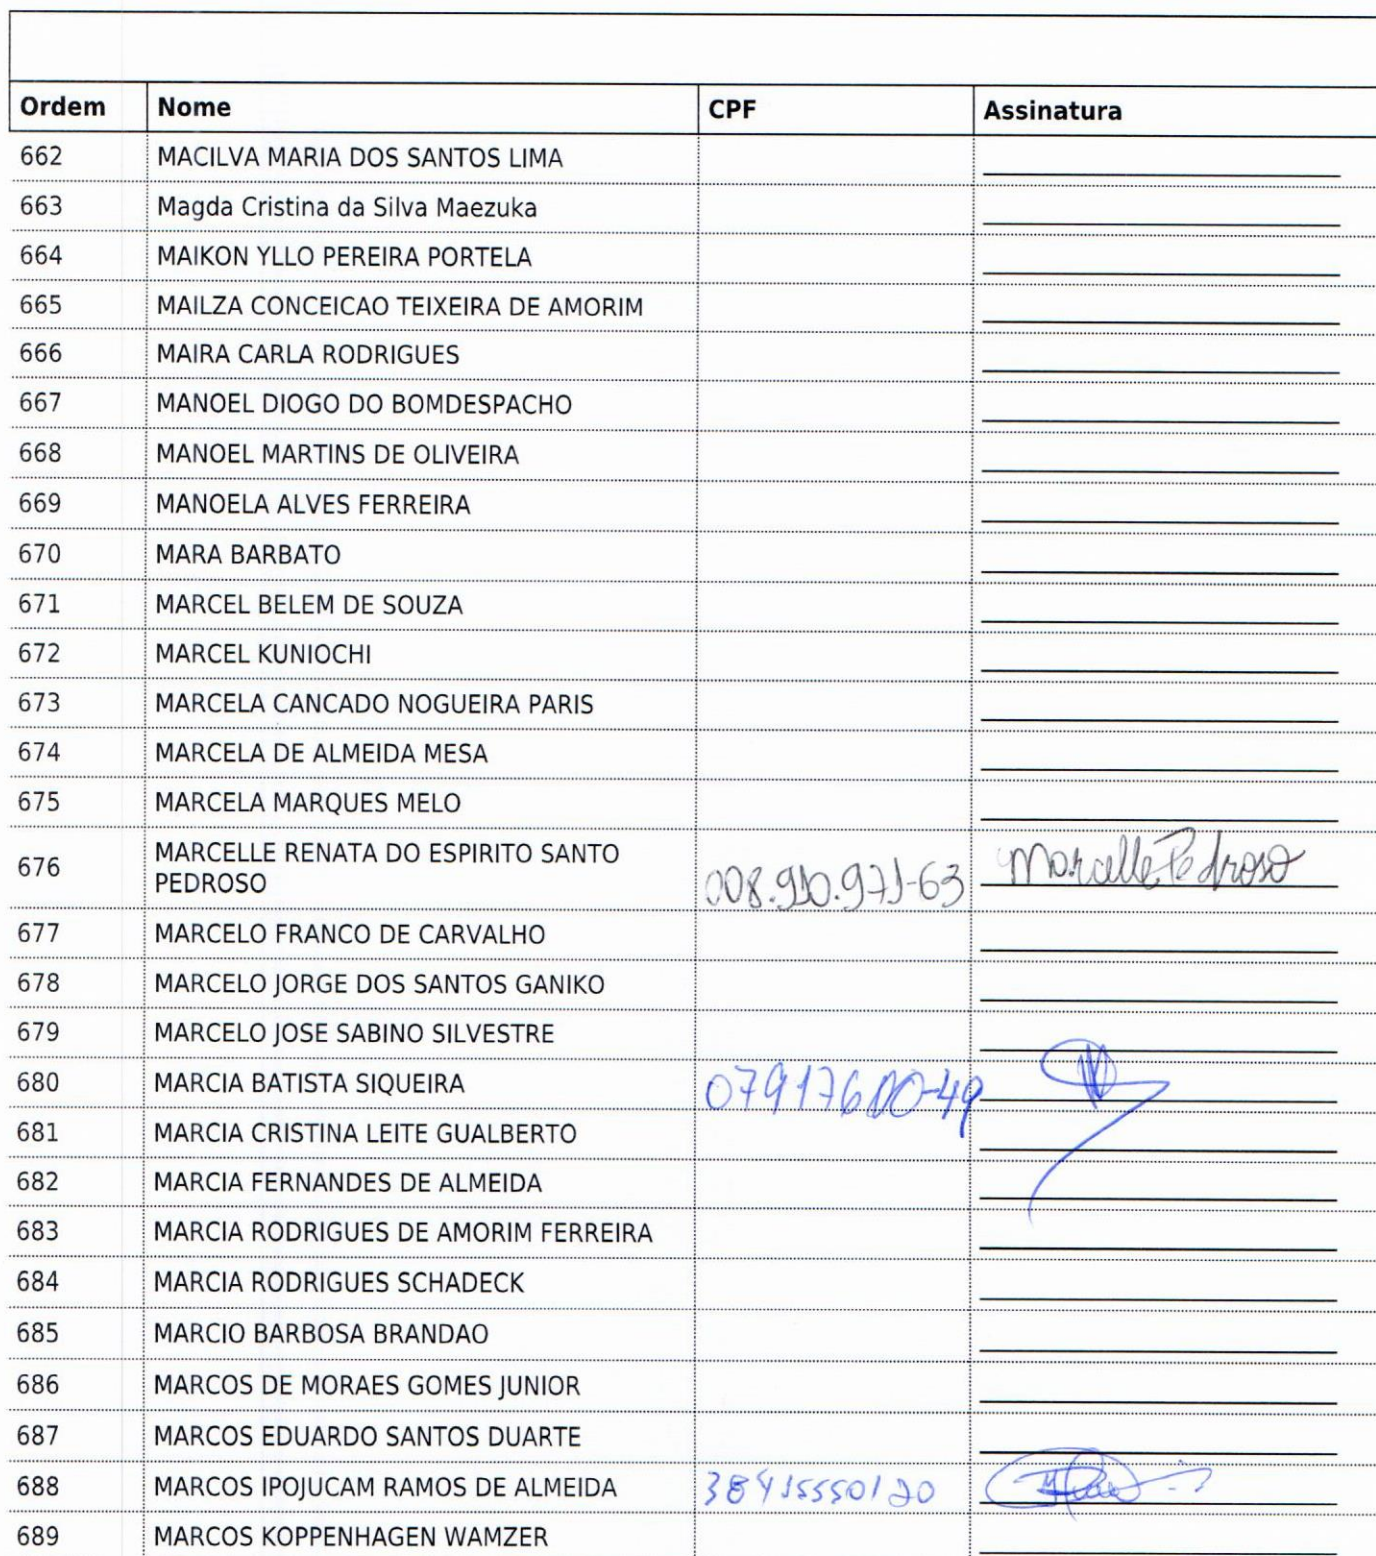 Ordem Nome CPF Assinatura
662 MACILVA MARIA DOS SANTOS LIMA
663 Magda Cristina da Silva Maezuka
664 MAIKON YLLO PEREIRA PORTELA
665 MAILZA CONCEICAO TEIXEIRA DE AMORIM
666 MAIRA CARLA RODRIGUES
667 MANOEL DIOGO DO BOMDESPACHO
668 MANOEL MARTINS DE OLIVEIRA
669 MANOELA ALVES FERREIRA
670 MARA BARBATO
671 MARCEL BELEM DE SOUZA
672 MARCEL KUNIOCHI
673 MARCELA CANCADO NOGUEIRA PARIS
674 MARCELA DE ALMEIDA MESA
675 MARCELA MARQUES MELO
676 MARCELLE RENATA DO ESPIRITO SANTO
PEDROSO 008.910.971-63 Marcelle Pedroso
677 MARCELO FRANCO DE CARVALHO
678 MARCELO JORGE DOS SANTOS GANIKO
679 MARCELO JOSE SABINO SILVESTRE
680 MARCIA BATISTA SIQUEIRA
681 MARCIA CRISTINA LEITE GUALBERTO
682 MARCIA FERNANDES DE ALMEIDA
683 MARCIA RODRIGUES DE AMORIM FERREIRA
684 MARCIA RODRIGUES SCHADECK
685 MARCIO BARBOSA BRANDAO
686 MARCOS DE MORAES GOMES JUNIOR
687 MARCOS EDUARDO SANTOS DUARTE
688 MARCOS IPOJUCAM RAMOS DE ALMEIDA 38415550120
689 MARCOS KOPPENHAGEN WAMZER